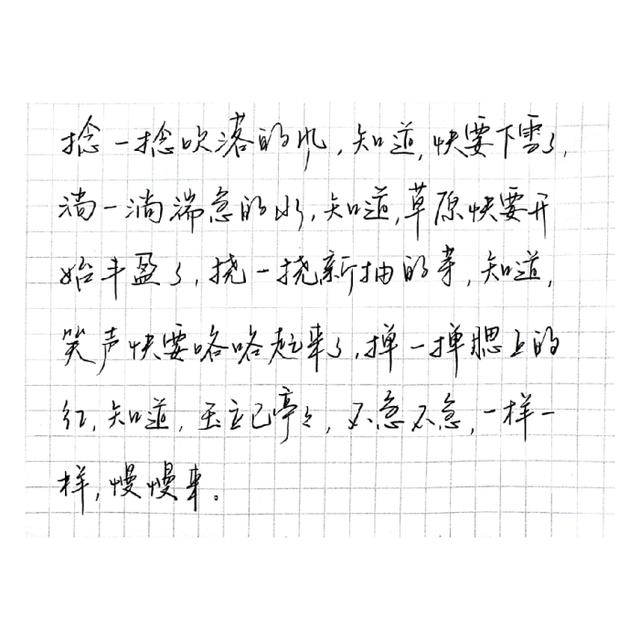 捻一捻吹落的风，知道，快要下雪了，
淌一淌湍急的水，知道，草原快要开
始丰盈了，挠一挠新抽的芽，知道，
笑声快要咯咯起来了，掸一掸腮上的
红，知道，玉立已亭亭，不急不急，一样一
样，慢慢来。